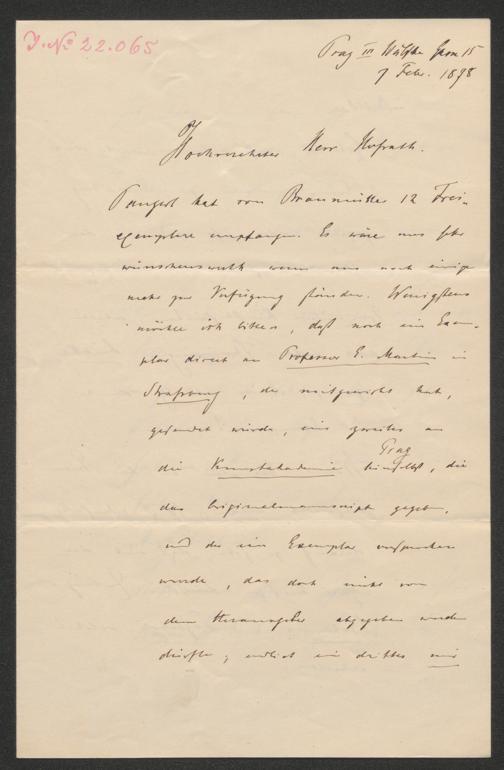 J. No 22.065
Prag III
7 Febr. 1878
Hochverehrter Herr Hofrath.
Pangerl hat von Braumüller 12 Frei-
exemplare empfangen. Es wäre uns sehr
wünschenswerth wenn uns noch einige
mehr zur Verfügung ständen. Wenigstens
möchte ich bitten, daß noch ein Exem-
plar direct an Professor E. Martin in
Straßburg, der mitgewirkt hat,
gesendet würde, ein zweites an
die Kunstakademie Prag hieselbst, die
das Originalmanuscript gegeben,
und der ein Exemplar versprochen
wurde, das doch nicht von
dem Herausgeber abgegeben werden
dürfte; endlich ein drittes mir